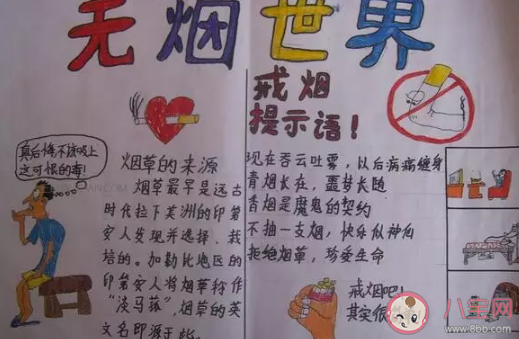 无烟世界
真后悔不该吸上
这可恨的毒!
烟草的来源
烟草最早是远古
时代拉丁美洲的印第
安人发现并选择、栽
培的。加勒比地区的
印第安人将烟草称作
"淡马菰",烟草的英
文名即源于此。
戒烟
提示语!
现在吞云吐雾,以后病痛缠身
青烟长在,噩梦长随
香烟是魔鬼的契约
不抽一支烟,快乐似神仙
拒绝烟草,珍爱生命
戒烟吧!
其实很
八宝网
www.8bb.com